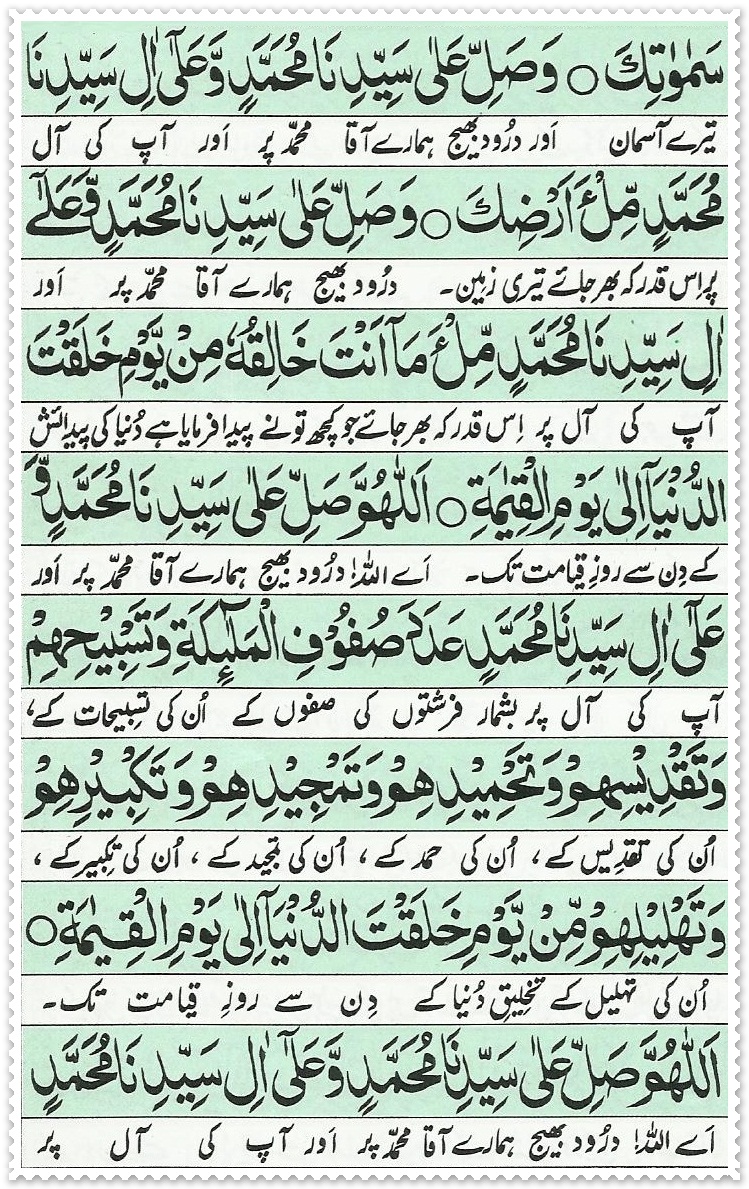 سَمٰوٰتِكَ ○ وَصَلِّ عَلٰى سَيِّدِنَا مُحَمَّدٍ وَّعَلٰٓى اٰلِ سَيِّدِنَا
تیرے آسمان اور درُود بھیج ہمارے آقا محمّد پر اَور آپ کی آل
مُحَمَّدٍ مِّلْءَ اَرْضِكَ ○ وَصَلِّ عَلٰى سَيِّدِنَا مُحَمَّدٍ وَّعَلٰٓے
پر اِس قدر کہ بھر جائے تیری زمین۔ درُود بھیج ہمارے آقا محمّد پر اَور
اٰلِ سَيِّدِنَا مُحَمَّدٍ مِّلْءَ مَآ اَنْتَ خَالِقُهٗ مِنْ يَّوْمِ خَلَقْتَ
آپ کی آل پر اِس قدر کہ بھر جائے جو کچھ تو نے پیدا فرمایا ہے دُنیا کی پیدائش
الدُّنْيَآ اِلٰى يَوْمِ الْقِيٰمَةِ ○ اَللّٰهُمَّ صَلِّ عَلٰى سَيِّدِنَا مُحَمَّدٍ وَّ
کے دِن سے روزِ قیامت تک۔ اَے اللہ! درُود بھیج ہمارے آقا محمّد پر اَور
عَلٰٓى اٰلِ سَيِّدِنَا مُحَمَّدٍ عَدَدَ صُفُوْفِ الْمَلٰٓئِكَةِ وَتَسْبِيْحِهِمْ
آپ کی آل پر بشمار فرشتوں کی صفوں کے اُن کی تسبیحات کے،
وَتَقْدِيْسِهِمْ وَتَحْمِيْدِهِمْ وَتَمْجِيْدِهِمْ وَتَكْبِيْرِهِمْ
اُن کی تقدیس کے، اُن کی حمد کے، اُن کی تمجید کے، اُن کی تکبیر کے،
وَتَهْلِيْلِهِمْ مِّنْ يَّوْمِ خَلَقْتَ الدُّنْيَآ اِلٰى يَوْمِ الْقِيٰمَةِ ○
اُن کی تہلیل کے تخلیقِ دُنیا کے دِن سے روزِ قیامت تک۔
اَللّٰهُمَّ صَلِّ عَلٰى سَيِّدِنَا مُحَمَّدٍ وَّعَلٰٓى اٰلِ سَيِّدِنَا مُحَمَّدٍ
اَے اللہ! درُود بھیج ہمارے آقا محمّد پر اَور آپ کی آل پر